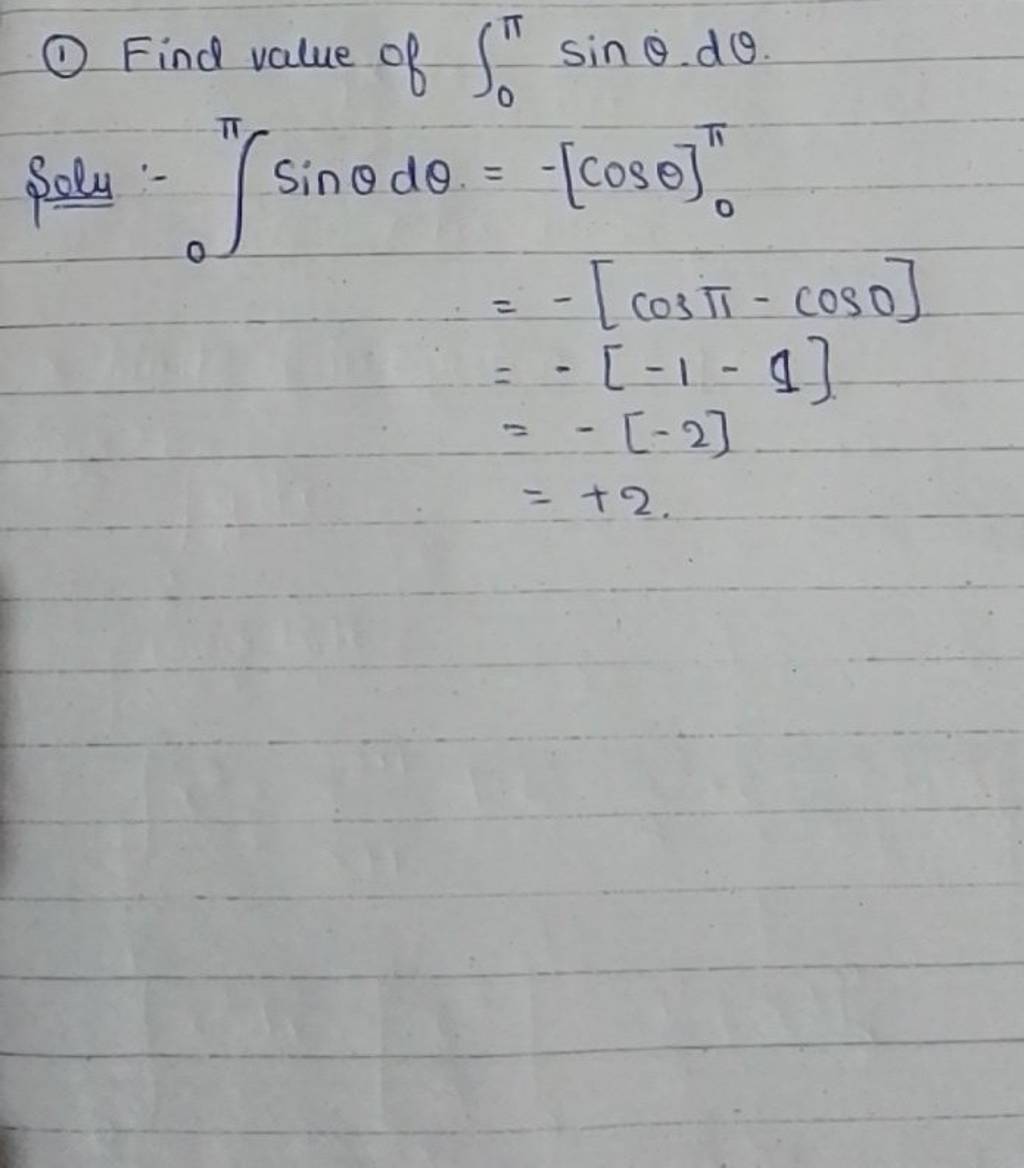 ① Find value of ∫₀^π sin θ. dθ.
Solu :- ∫₀^π sin θ dθ. = -[cos θ]₀^π
= - [cos π - cos 0]
= - [-1 - 1]
= - [-2]
= +2.